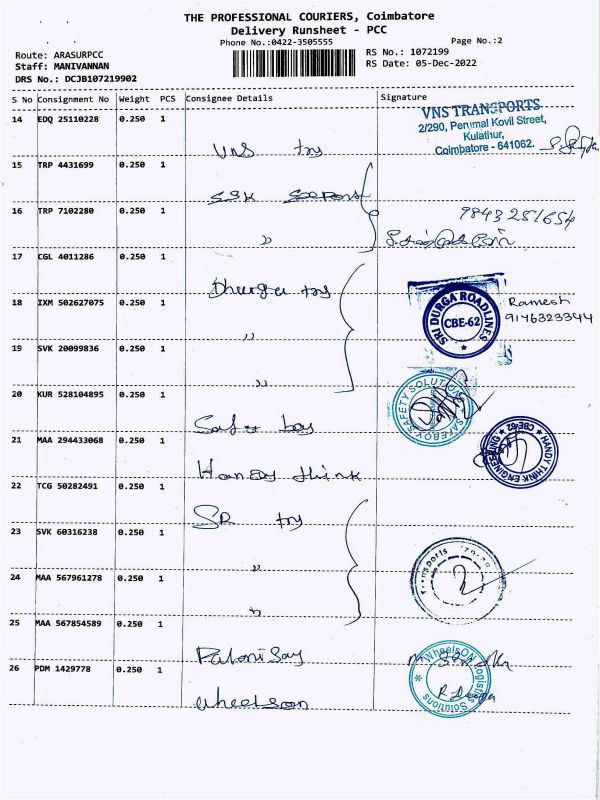 THE PROFESSIONAL COURIERS, Coimbatore
Delivery Runsheet - PCC
Phone No.:0422-3505555
Page No.:2
Route: ARASURPCC
RS No.: 1072199
Staff: MANIVANNAN
RS Date: 05-Dec-2022
DRS No.: DCJB107219902
S No Consignment No Weight PCS Consignee Details Signature
14 EDQ 25110228 0.250 1
VNS TRANSPORTS
2/290, Perumal Kovil Street,
Kulathur,
Coimbatore - 641062.
VNS try
15 TRP 4431699 0.250 1
SSK
16 TRP 7102280 0.250 1
9843251654
"
17 CGL 4011286 0.250 1
Dhurga try
18 IXM 502627075 0.250 1
SRI DURGA ROADLINES
CBE-62
Ramesh
9146323344
"
19 SVK 20099836 0.250 1
"
20 KUR 528104895 0.250 1
SAFEBOY SAFETY SOLUTION
Safe boy
21 MAA 294433068 0.250 1
HANDY THINK ENGINEERING
CBE-62
Handy think
22 TCG 50282491 0.250 1
SR try
23 SVK 60316238 0.250 1
"
24 MAA 567961278 0.250 1
"
25 MAA 567854589 0.250 1
26 PDM 1429778 0.250 1
WheelsON Logistics Solutions
wheelson